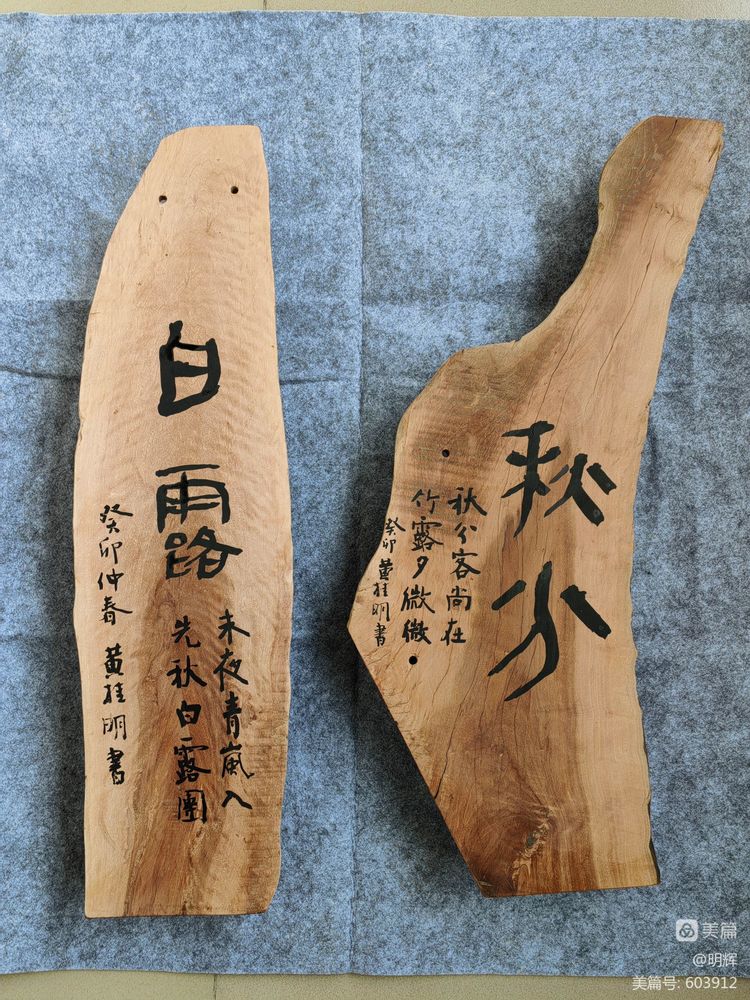 白露
未夜青嵐入
先秋白露團
癸卯仲春 黄桂明書
秋分
秋分客尚在
竹露夕微微
癸卯 黄桂明書
美篇
@明辉
美篇号: 603912